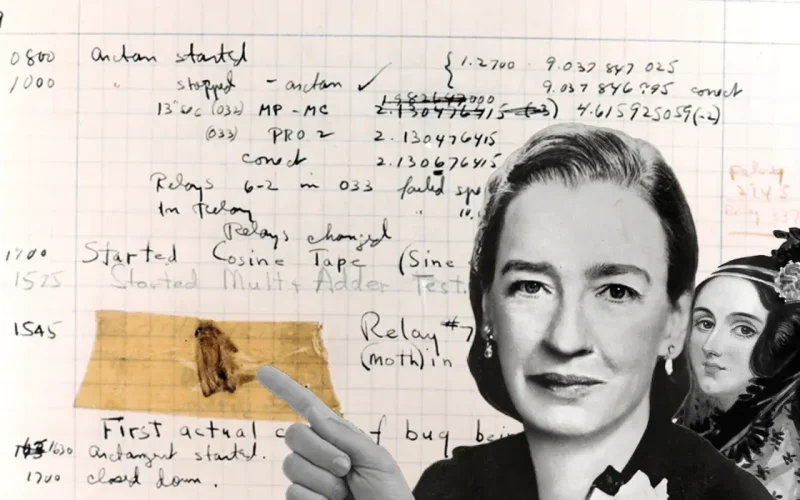 9
0800 arctan started { 1.2700 9.037 847 025
1000 " stopped - arctan ✓ 9.037 846 795 conect
13"uc (032) MP - MC 2.130476415 (-3) 4.615925059(-2)
(033) PRO 2 2.130476415
conect 2.130676415
Relays 6-2 in 033 failed spe
In Relay "
Relays changed
1700 Started Cosine Tape (Sine
1525 Started Mult + Adder Test.
1545 Relay #7
(moth) in
First actual c f bug bei
1630 arctangent started.
1700 closed down.
Relay
2145
Relay 337